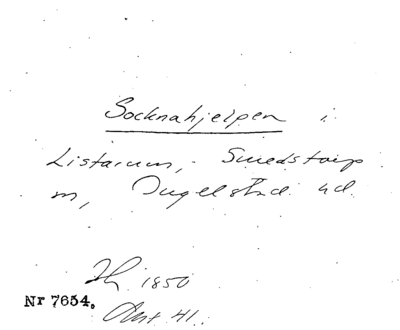 Socknahjelpen i
Listarum, Smedstorp
m, Ingelstad hd.
1850
Nr 7654.
Ant 41.